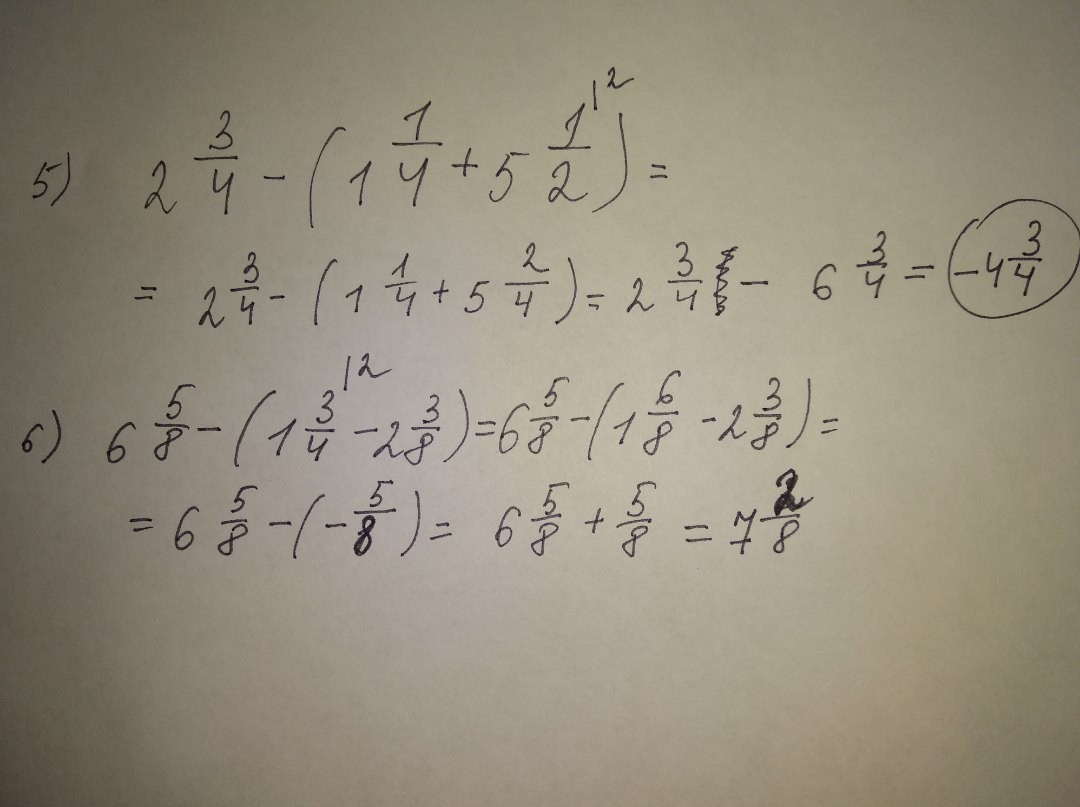 5) 2 3/4 - (1 1/4 + 5 1/2 |2) =
= 2 3/4 - (1 1/4 + 5 2/4) = 2 3/4 - 6 3/4 = -4 3/4
6) 6 5/8 - (1 3/4 |2 - 2 3/8) = 6 5/8 - (1 6/8 - 2 3/8) =
= 6 5/8 - (- 5/8) = 6 5/8 + 5/8 = 7 2/8